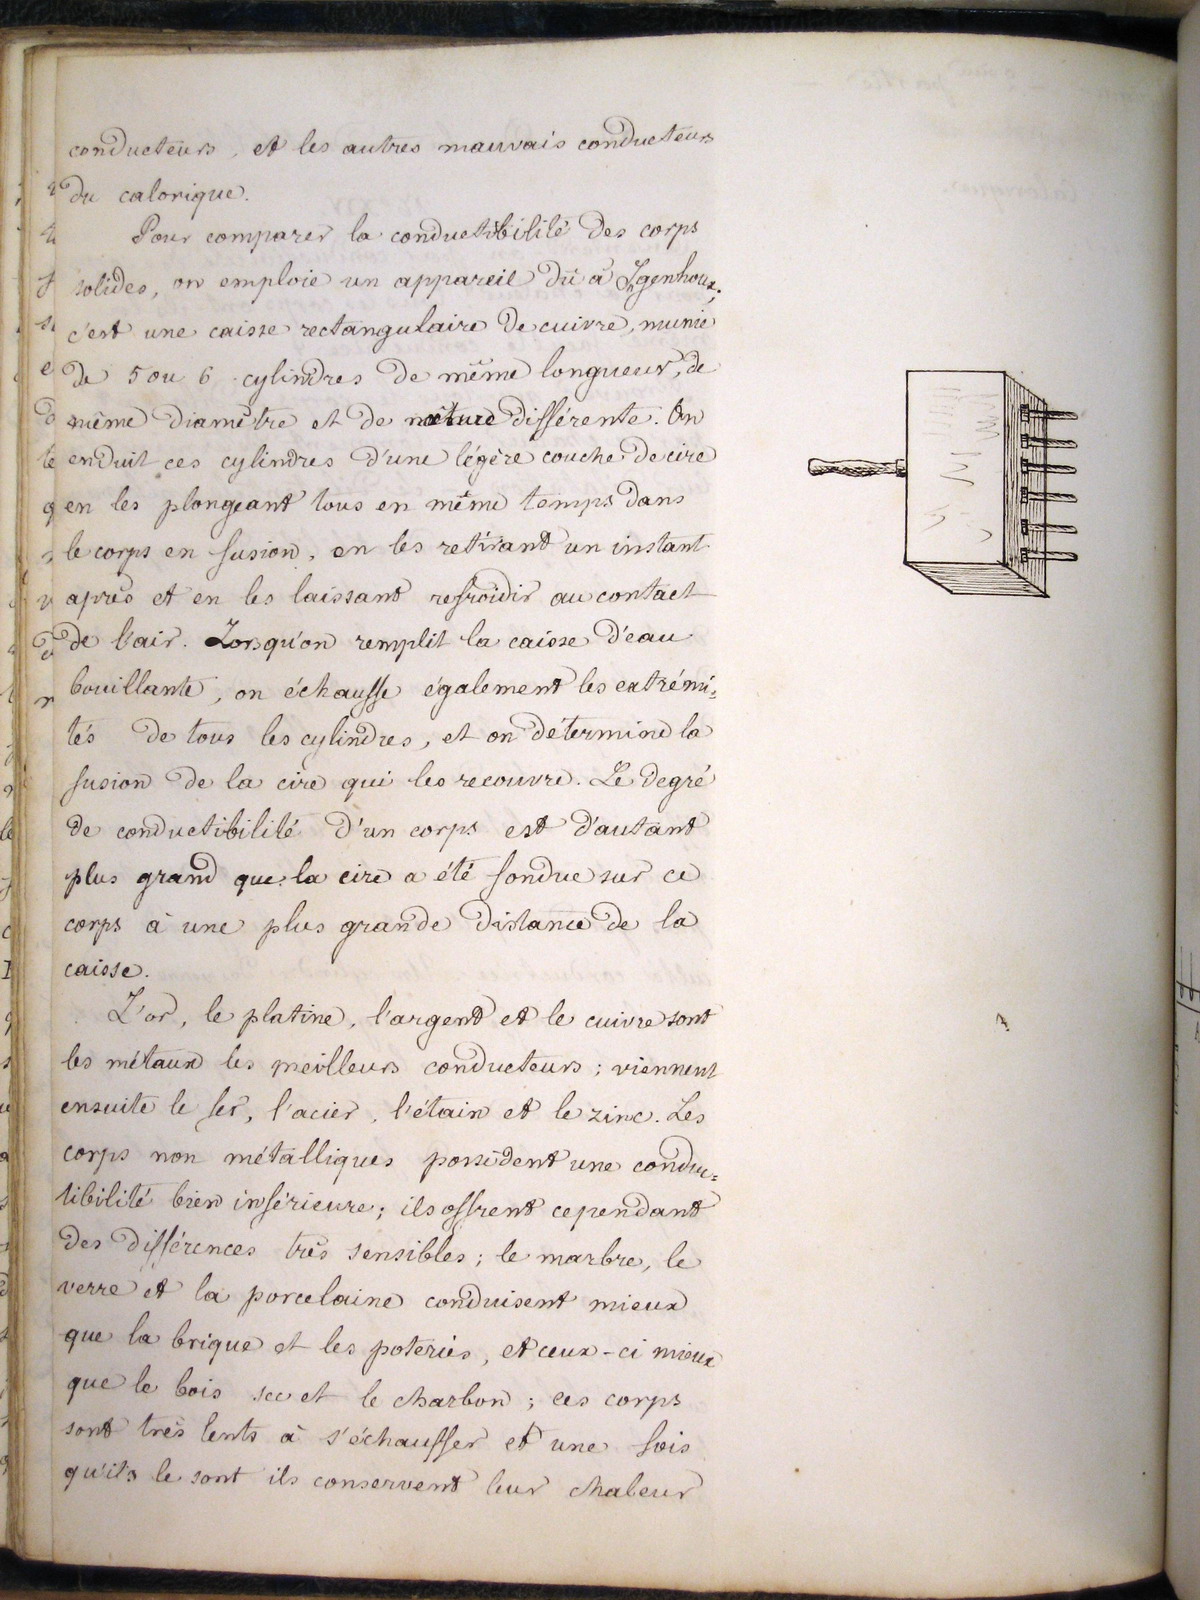 conducteurs, et les autres mauvais conducteurs
du calorique.
Pour comparer la conductibilité des corps
solides, on emploie un appareil dû à Igenhoux;
c'est une caisse rectangulaire de cuivre, munie
de 5 ou 6 cylindres de même longueur, de
même diamètre et de nature différente. On
enduit ces cylindres d'une légère couche de cire
en les plongeant tous en même temps dans
le corps en fusion, en les retirant un instant
après et en les laissant refroidir au contact
de l'air. Lorsqu'on remplit la caisse d'eau
bouillante, on échauffe également les extrémi=
tés de tous les cylindres, et on détermine la
fusion de la cire qui les recouvre. Le degré
de conductibilité d'un corps est d'autant
plus grand que la cire a été fondue sur ce
corps à une plus grande distance de la
caisse.
L'or, le platine, l'argent et le cuivre sont
les métaux les meilleurs conducteurs; viennent
ensuite le fer, l'acier, l'étain et le zinc. Les
corps non métalliques possèdent une conduc=
tibilité bien inférieure; ils offrent cependant
des différences très sensibles; le marbre, le
verre et la porcelaine conduisent mieux
que la brique et les poteries, et ceux-ci mieux
que le bois sec et le charbon; ces corps
sont très lents à s'échauffer et une fois
qu'ils le sont ils conservent leur chaleur